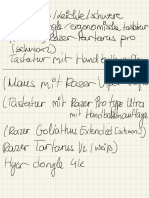 /leichte/schwere
/ergonomische Tastatur
Razer Tartarus pro
(schwarz)
Tastatur mit Handballenauflage
(Maus mit Razer Viper
(Tastatur mit Razer Pro type Ultra
mit Handballenauflage
(Razer Goliathus Extended Chroma)
Razer Tartarus V2 (weiß)
Hyper dongle 4k